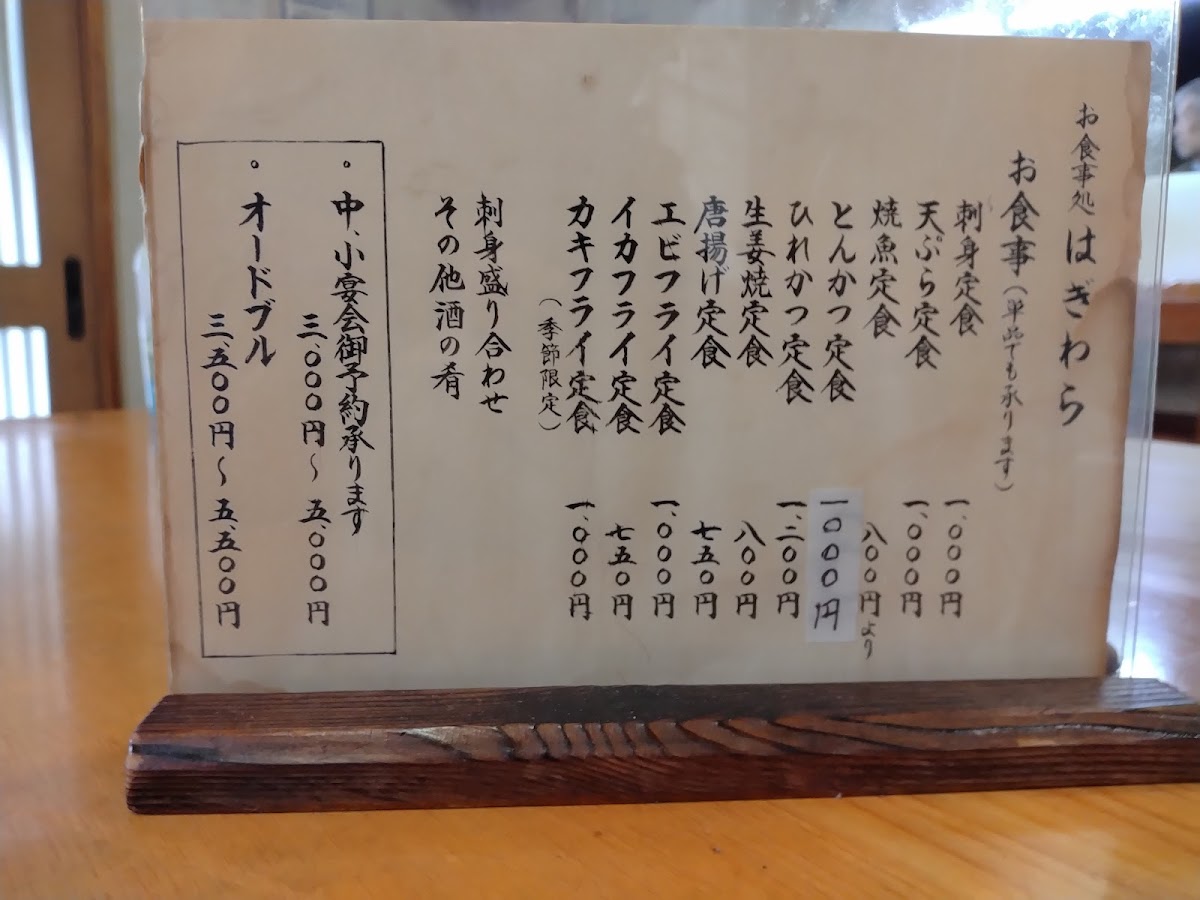 お食事処 はぎわら
お食事(単品でも承ります)
刺身定食 一、〇〇〇円
天ぷら定食 一、〇〇〇円
焼魚定食 八〇〇円より
とんかつ定食 一〇〇〇円
ひれかつ定食 一、二〇〇円
生姜焼定食 八〇〇円
唐揚げ定食 七五〇円
エビフライ定食 一、〇〇〇円
イカフライ定食 七五〇円
カキフライ定食 一、〇〇〇円
(季節限定)
刺身盛り合わせ
その他酒の肴
。中、小宴会御予約承ります
三、〇〇〇円〜五、〇〇〇円
。オードブル
三、五〇〇円〜五、五〇〇円